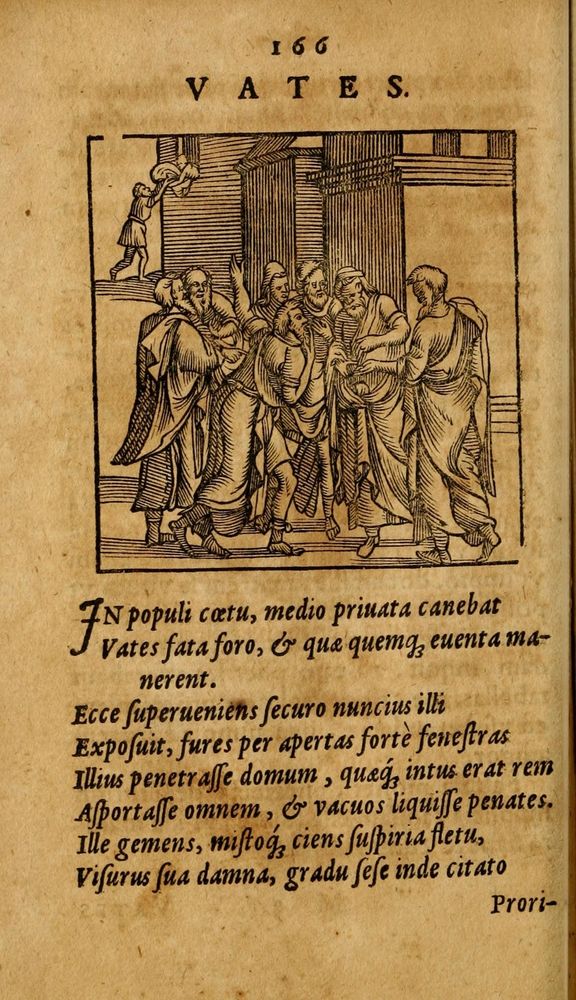 166
VATES.
IN populi cœtu, medio priuata canebat
Vates fata foro, & quæ quemqȝ euenta ma-
nerent.
Ecce ſuperueniens ſecuro nuncius illi
Expoſuit, fures per apertas fortè feneſtras
Illius penetraſſe domum, quæqȝ́ intus erat rem
Aſportaſſe omnem, & vacuos liquiſſe penates.
Ille gemens, miſtoqȝ́ ciens ſuſpiria fletu,
Viſurus ſua damna, gradu ſeſe inde citato
Prori-